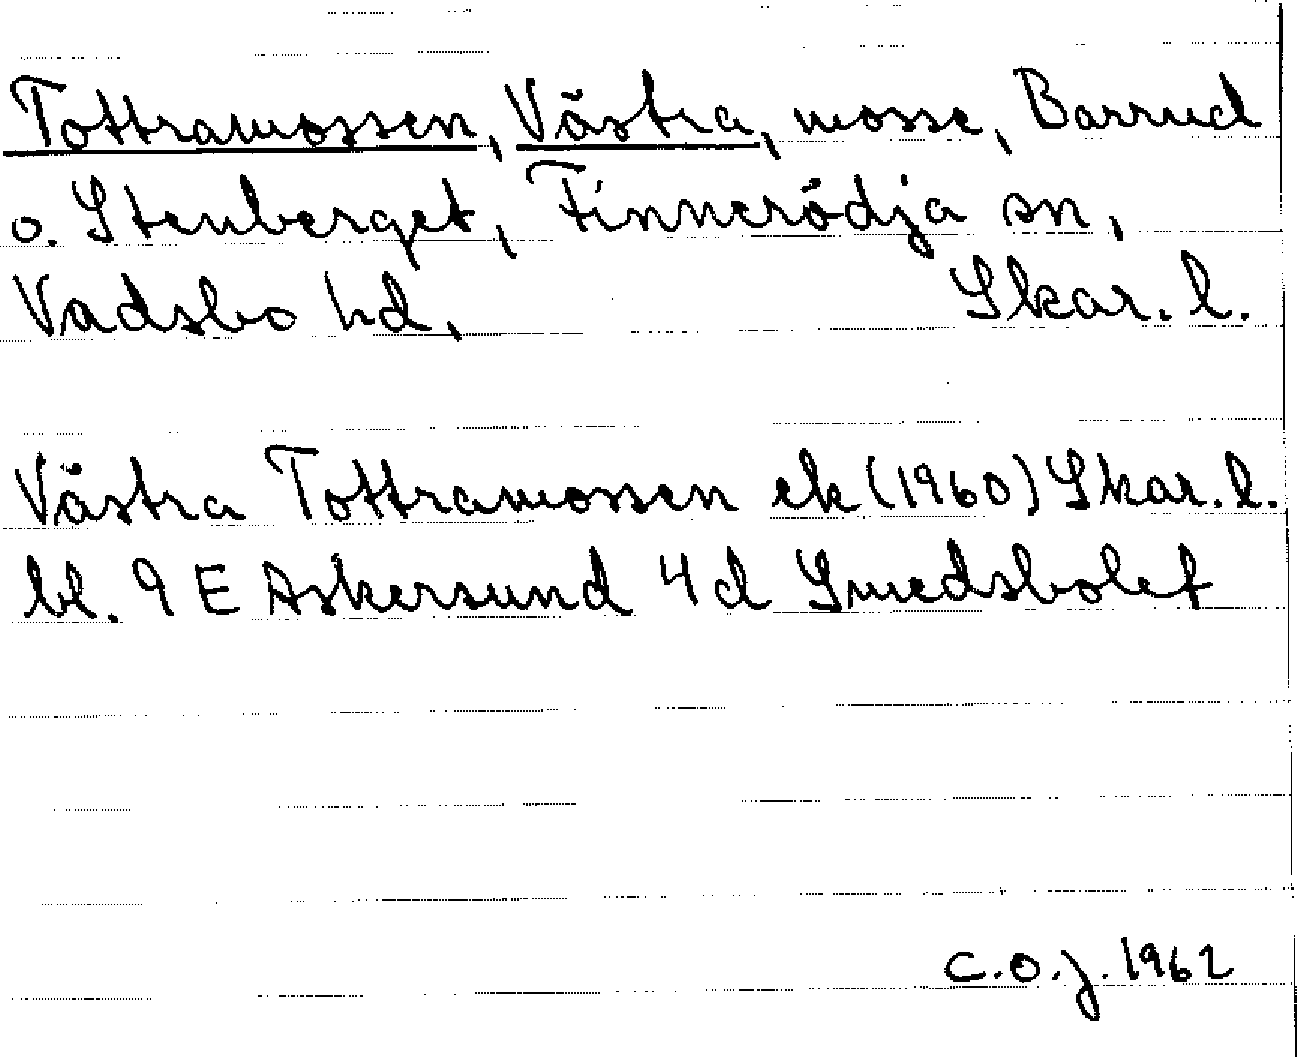 Tottramossen, Västra, mosse, Barrud
o. Stenberget, Finnerödja sn,
Vadsbo hd, Skar. l.
Västra Tottramossen ek (1960) Skar. l.
bl. 9 E Askersund 4 d Smedsbolet
C.O.J. 1962